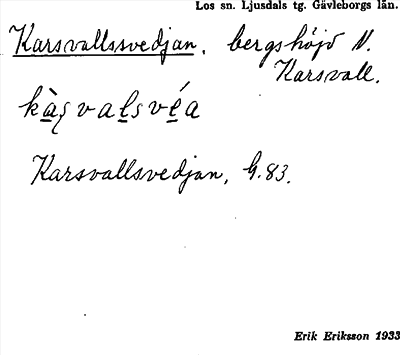 Los sn. Ljusdals tg. Gävleborgs län.
Karsvallssvedjan, bergshöjd N.
Karsvall.
Karsvallsvedjan, G.83.
Erik Eriksson 1933